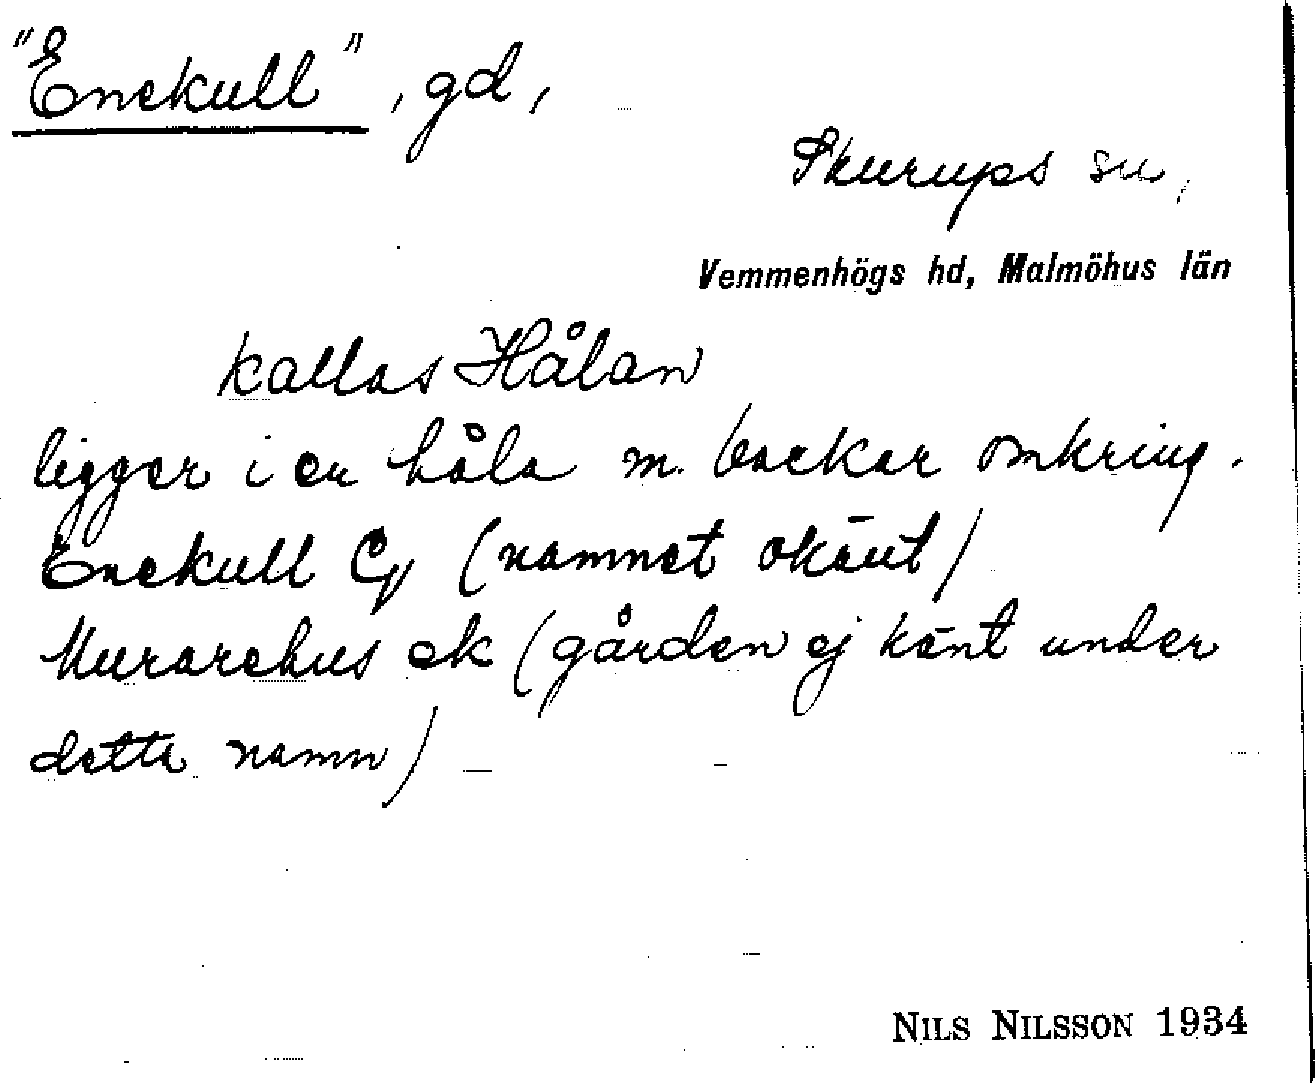 "Enekull", gd,
Skurups sn,
Vemmenhögs hd, Malmöhus län
kallas Hålan
ligger i en håla m. backar omkring.
Enekull Cg (namnet okänt)
Murarehus ek (gården ej känt under
detta namn)
NILS NILSSON 1934